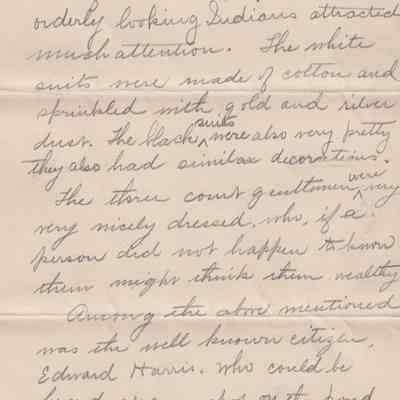 orderly looking Indians attracted
much attention. The white
suits were made of cotton and
sprinkled with gold and silver
dust. The black suits were also very pretty
they also had similar decorations.
The three court gentlemen were very
very nicely dressed, who, if a
person did not happen to know
them might think them wealthy
Among the above mentioned
was the well known citizen,
Edward Harris. who could be